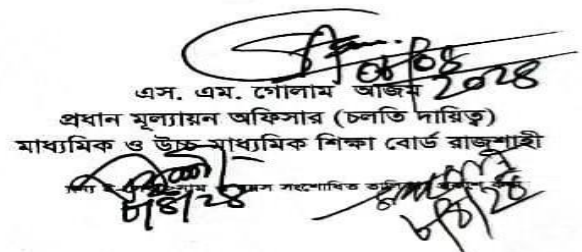 ০৮/০৪
২০২৪
এস. এম. গোলাম আজম
প্রধান মূল্যায়ন অফিসার (চলতি দায়িত্ব)
মাধ্যমিক ও উচ্চ মাধ্যমিক শিক্ষা বোর্ড রাজশাহী
সংশোধিত
৮/৪/২৪
৮/৪/২৪